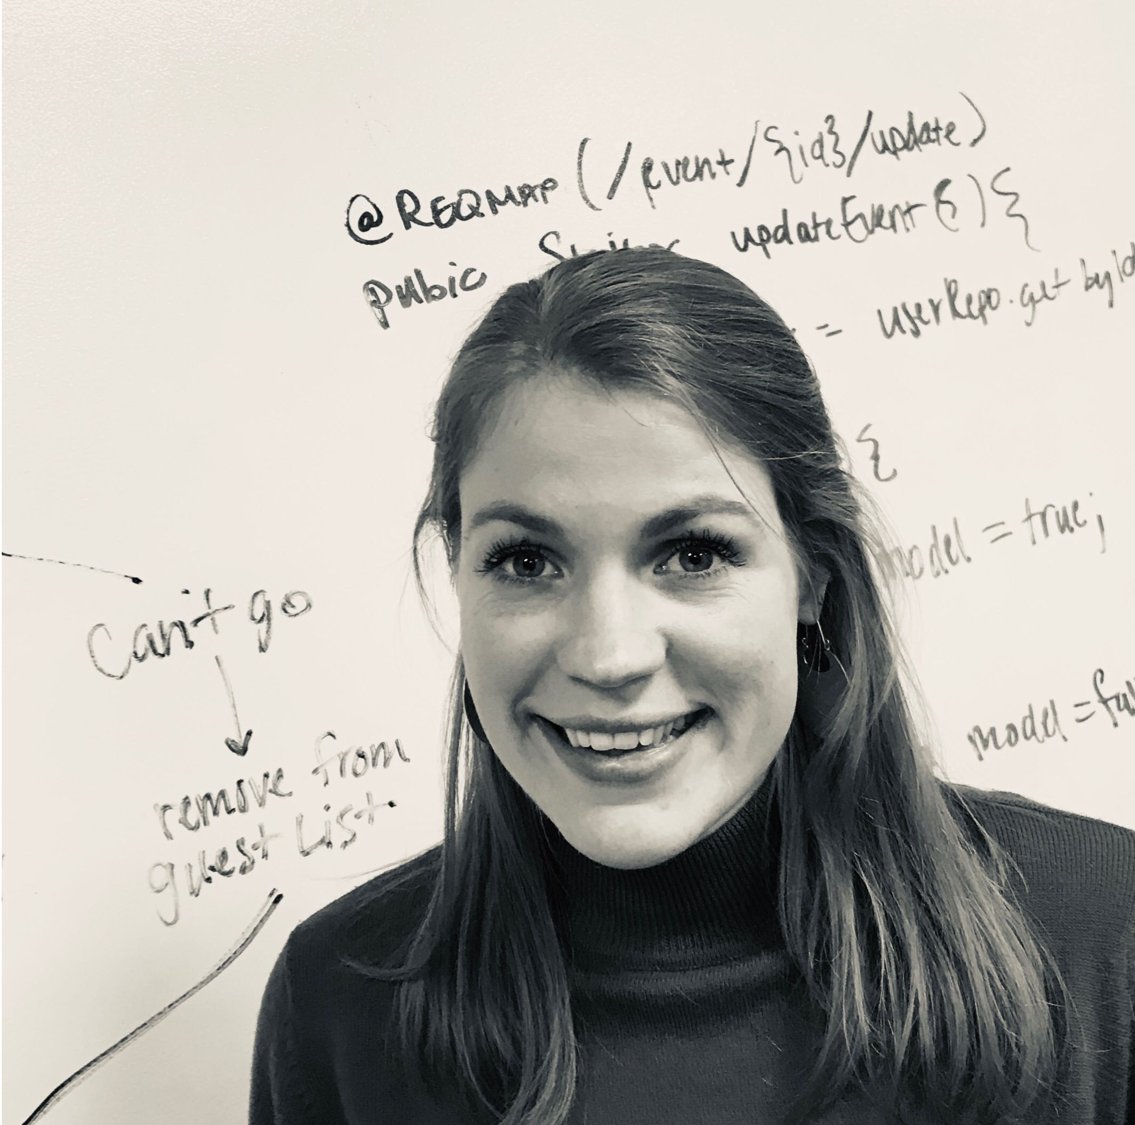 @REQMAP (/event/{id}/update)
pubic String updateEvent( ) {
= userRepo.get byId
{
model = true;
model = fal
Can't go
remove from
guest List